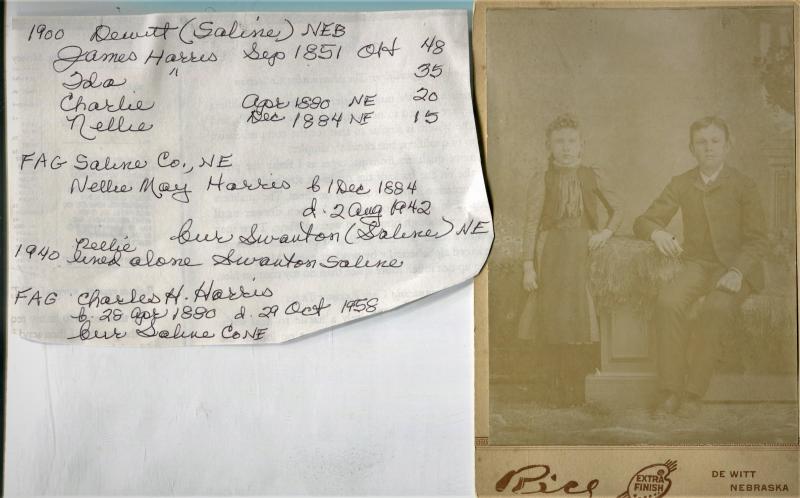 1900 Dewitt (Saline) NEB
James Harris Sep 1851 OH 48
Ida " 35
Charlie Apr 1880 NE 20
Nellie Dec 1884 NE 15
FAG Saline Co., NE
Nellie May Harris b 1 Dec 1884
d. 2 Aug 1942
bur Swanton (Saline) NE
1940 Nellie lived alone Swanton Saline
FAG Charles H. Harris
b. 28 Apr 1880 d. 29 Oct 1958
bur Saline Co NE
Rice
EXTRA
FINISH
DE WITT
NEBRASKA